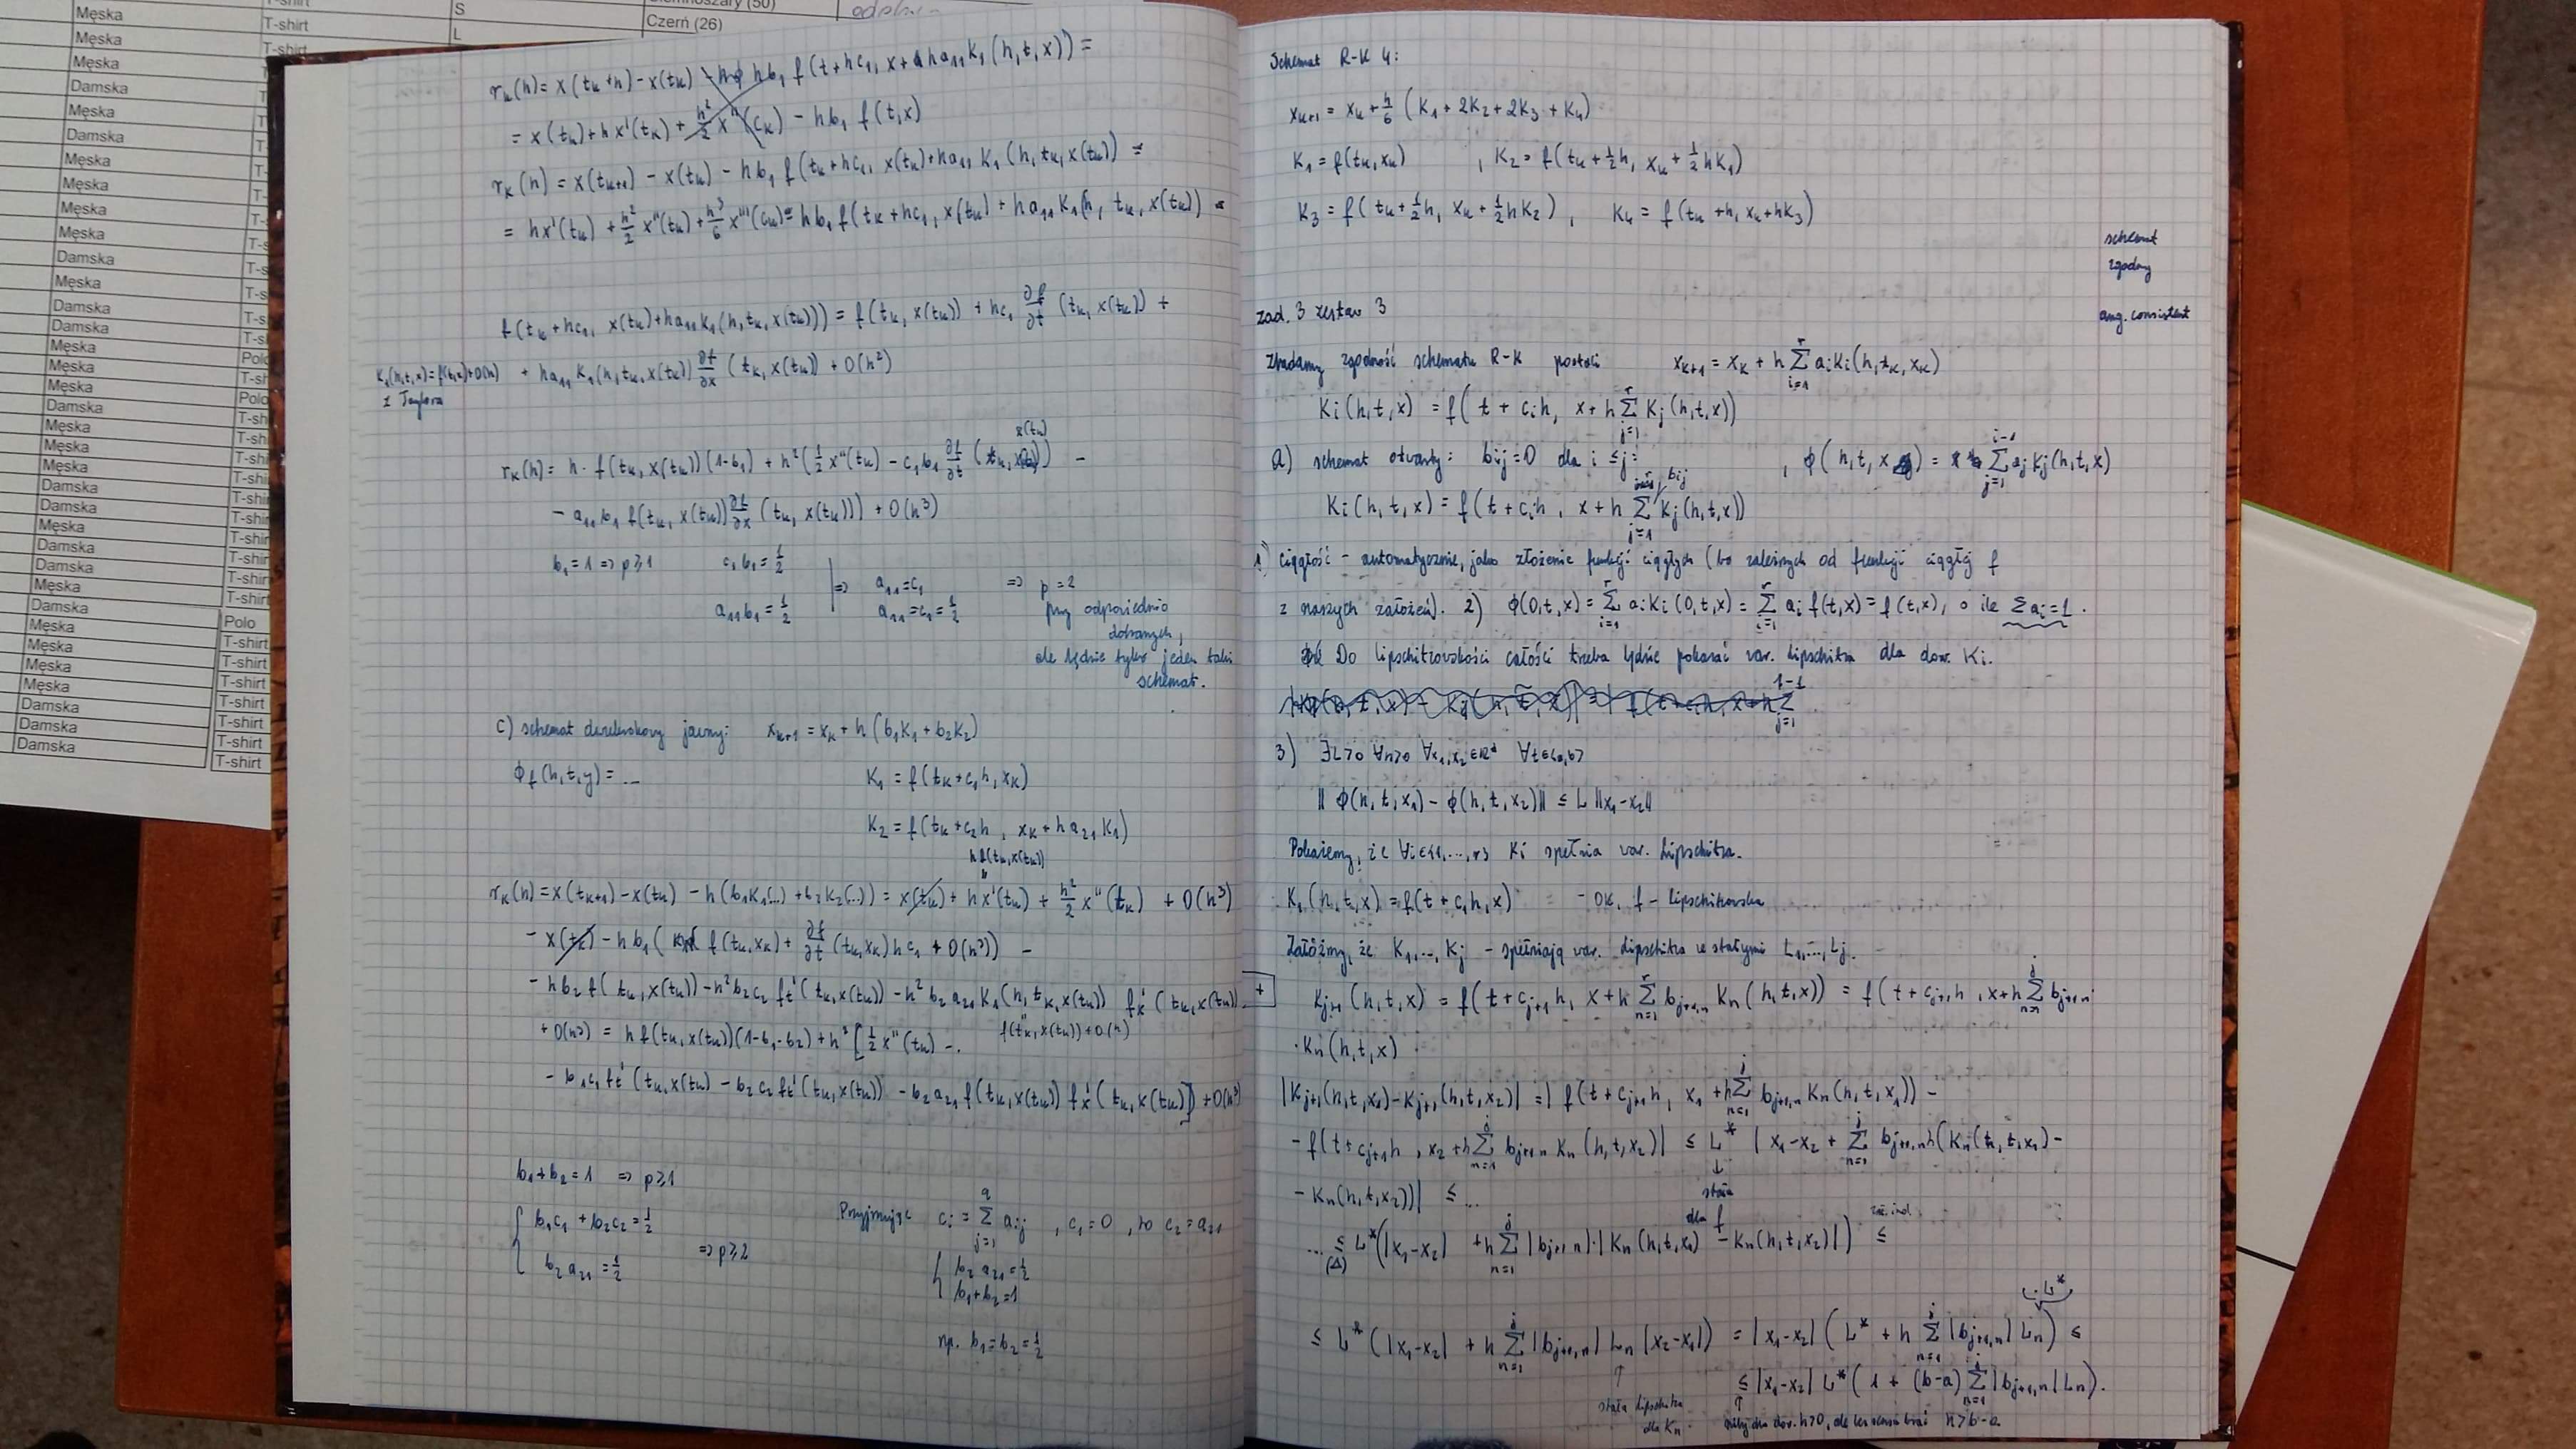 Męska T-shirt S Ciemnoszary (50)
Męska T-shirt L Czerń (26)
Męska T-shirt
Męska
Damska
Męska
Damska
Męska
Męska
Męska
Męska
Damska
Męska
Damska
Damska
Męska
Męska
Męska
Damska
Męska
Męska
Męska
Damska
Damska
Męska
Damska
Damska
Męska
Damska
Męska Polo
Męska T-shirt
Męska T-shirt
Męska T-shirt
Damska T-shirt
Damska T-shirt
Damska T-shirt
T-shirt
r_k(h) = x(t_k+h) - x(t_k) - hb₁ f(t+hc₁, x+ha₁₁K₁(h,t,x)) =
= x(t_k)+hx'(t_k) + h²/2 x''(c_k) - hb₁ f(t,x)
r_k(h) = x(t_{k+1}) - x(t_k) - hb₁ f(t_k+hc₁, x(t_k)+ha₁₁ K₁(h,t_k,x(t_k)) =
= hx'(t_k) + h²/2 x''(t_k) + h³/6 x'''(c_k) - hb₁ f(t_k+hc₁, x(t_k) + ha₁₁K₁(h, t_k, x(t_k)) =
f(t_k+hc₁, x(t_k)+ha₁₁K₁(h,t_k,x(t_k))) = f(t_k, x(t_k)) + hc₁ ∂f/∂t (t_k, x(t_k)) +
K₁(h,t,x)=f(t,x)+O(h) + ha₁₁ K₁(h,t_k,x(t_k)) ∂f/∂x (t_k, x(t_k)) + O(h²)
z Taylora
x(t_k)
r_k(h) = h · f(t_k, x(t_k))(1-b₁) + h²(½ x''(t_k) - c₁b₁ ∂f/∂t (t_k, )) -
- a₁₁b₁ f(t_k, x(t_k)) ∂f/∂x (t_k, x(t_k))) + O(h³)
b₁=1 => p≥1 c₁b₁=½ => a₁₁=c₁ => p=2
a₁₁b₁=½ a₁₁=c₁=½ przy odpowiednio
dobranych,
ale będzie tylko jeden taki
schemat.
c) schemat dwuetapowy jawny: x_{k+1} = x_k + h(b₁K₁+b₂K₂)
ϕ_f(h,t,y) = ... K₁ = f(t_k+c₁h, x_k)
K₂ = f(t_k+c₂h, x_k+ha₂₁K₁)
hf(t_k,x(t_k))
r_k(h) = x(t_{k+1}) - x(t_k) - h(b₁K₁(...)+b₂K₂(...)) = x(t_k) + hx'(t_k) + h²/2 x''(t_k) + O(h³)
- x(t_k) - hb₁( f(t_k,x_k) + ∂f/∂t (t_k,x_k)hc₁ + O(h²)) -
- hb₂f(t_k,x(t_k)) - h²b₂c₂ f_t'(t_k,x(t_k)) - h²b₂a₂₁K₁(h,t_k,x(t_k)) f_x'(t_k,x(t_k)) +
f(t_k,x(t_k))+O(h)
+ O(h³) = hf(t_k,x(t_k))(1-b₁-b₂)+h²[½x''(t_k) -
- b₁c₁f_t'(t_k,x(t_k)) - b₂c₂f_t'(t_k,x(t_k)) - b₂a₂₁f(t_k,x(t_k)) f_x'(t_k,x(t_k))] + O(h³)
b₁+b₂=1 => p≥1
b₁c₁+b₂c₂=½
b₂a₂₁=½ => p≥2
Przyjmując c_i = Σ_{j=1}^{q} a_ij, c₁=0, to c₂=a₂₁
b₂a₂₁=½
b₁+b₂=1
np. b₁=b₂=½
Schemat R-K 4:
x_{k+1} = x_k + h/6 (K₁+2K₂+2K₃+K₄)
K₁=f(t_k,x_k) , K₂=f(t_k+½h, x_k+½hK₁)
K₃=f(t_k+½h, x_k+½hK₂) , K₄=f(t_k+h, x_k+hK₃)
schemat
zgodny
ang. consistent
zad. 3 zestaw 3
Zbadamy zgodność schematu R-K postaci x_{k+1} = x_k + h Σ_{i=1}^{r} a_iK_i(h,t_k,x_k)
K_i(h,t,x) = f(t+c_ih, x+h Σ_{j=1}^{r} K_j(h,t,x))
a) schemat otwarty: b_ij=0 dla i≤j: , ϕ(h,t,x) = Σ_{j=1} a_jK_j(h,t,x)
K_i(h,t,x) = f(t+c_ih, x+h Σ_{j=1}^{i-1} b_ij K_j(h,t,x))
1) ciągłość - automatycznie, jako złożenie funkcji ciągłych (bo zależnych od funkcji ciągłej f
z naszych założeń). 2) ϕ(0,t,x) = Σ_{i=1}^{r} a_iK_i(0,t,x) = Σ_{i=1}^{r} a_i f(t,x) = f(t,x), o ile Σa_i=1.
Do lipschitzowskości całości trzeba będzie pokazać war. Lipschitza dla dow. K_i.
3) ∃L>0 ∀h>0 ∀x₁,x₂∈R^d ∀t∈<a,b>
‖ϕ(h,t,x₁) - ϕ(h,t,x₂)‖ ≤ L‖x₁-x₂‖
Pokażemy, że ∀i∈{1,...,r} K_i spełnia war. Lipschitza.
K₁(h,t,x) = f(t+c₁h,x) - OK, f - lipschitzowska
Załóżmy, że K₁,...,K_j - spełniają war. Lipschitza ze stałymi L₁,...,L_j.
K_{j+1}(h,t,x) = f(t+c_{j+1}h, x+h Σ_{n=1}^{r} b_{j+1,n} K_n(h,t,x)) = f(t+c_{j+1}h, x+h Σ_{n=1}^{j} b_{j+1,n}·
·K_n(h,t,x)
|K_{j+1}(h,t,x₁)-K_{j+1}(h,t,x₂)| = | f(t+c_{j+1}h, x₁+h Σ_{n=1}^{j} b_{j+1,n} K_n(h,t,x₁)) -
- f(t+c_{j+1}h, x₂+h Σ_{n=1}^{j} b_{j+1,n}K_n(h,t,x₂)| ≤ L* |x₁-x₂ + Σ_{n=1}^{j} b_{j+1,n}h(K_n(h,t,x₁) -
- K_n(h,t,x₂))| ≤ ...
stała
dla f
zał. ind.
... ≤ (Δ) L*(|x₁-x₂| + h Σ_{n=1}^{j} |b_{j+1,n}|·|K_n(h,t,x₁) - K_n(h,t,x₂)|) ≤
·L*
≤ L*(|x₁-x₂| + h Σ_{n=1}^{j} |b_{j+1,n}| L_n |x₂-x₁|) = |x₁-x₂| (L* + h Σ_{n=1}^{j} |b_{j+1,n}| L_n) ≤
≤ |x₁-x₂| L*(1 + (b-a) Σ_{n=1}^{j} |b_{j+1,n}| L_n).
stała Lipschitza
dla K_n. niby dla dow. h>0, ale bez sensu brać h>b-a